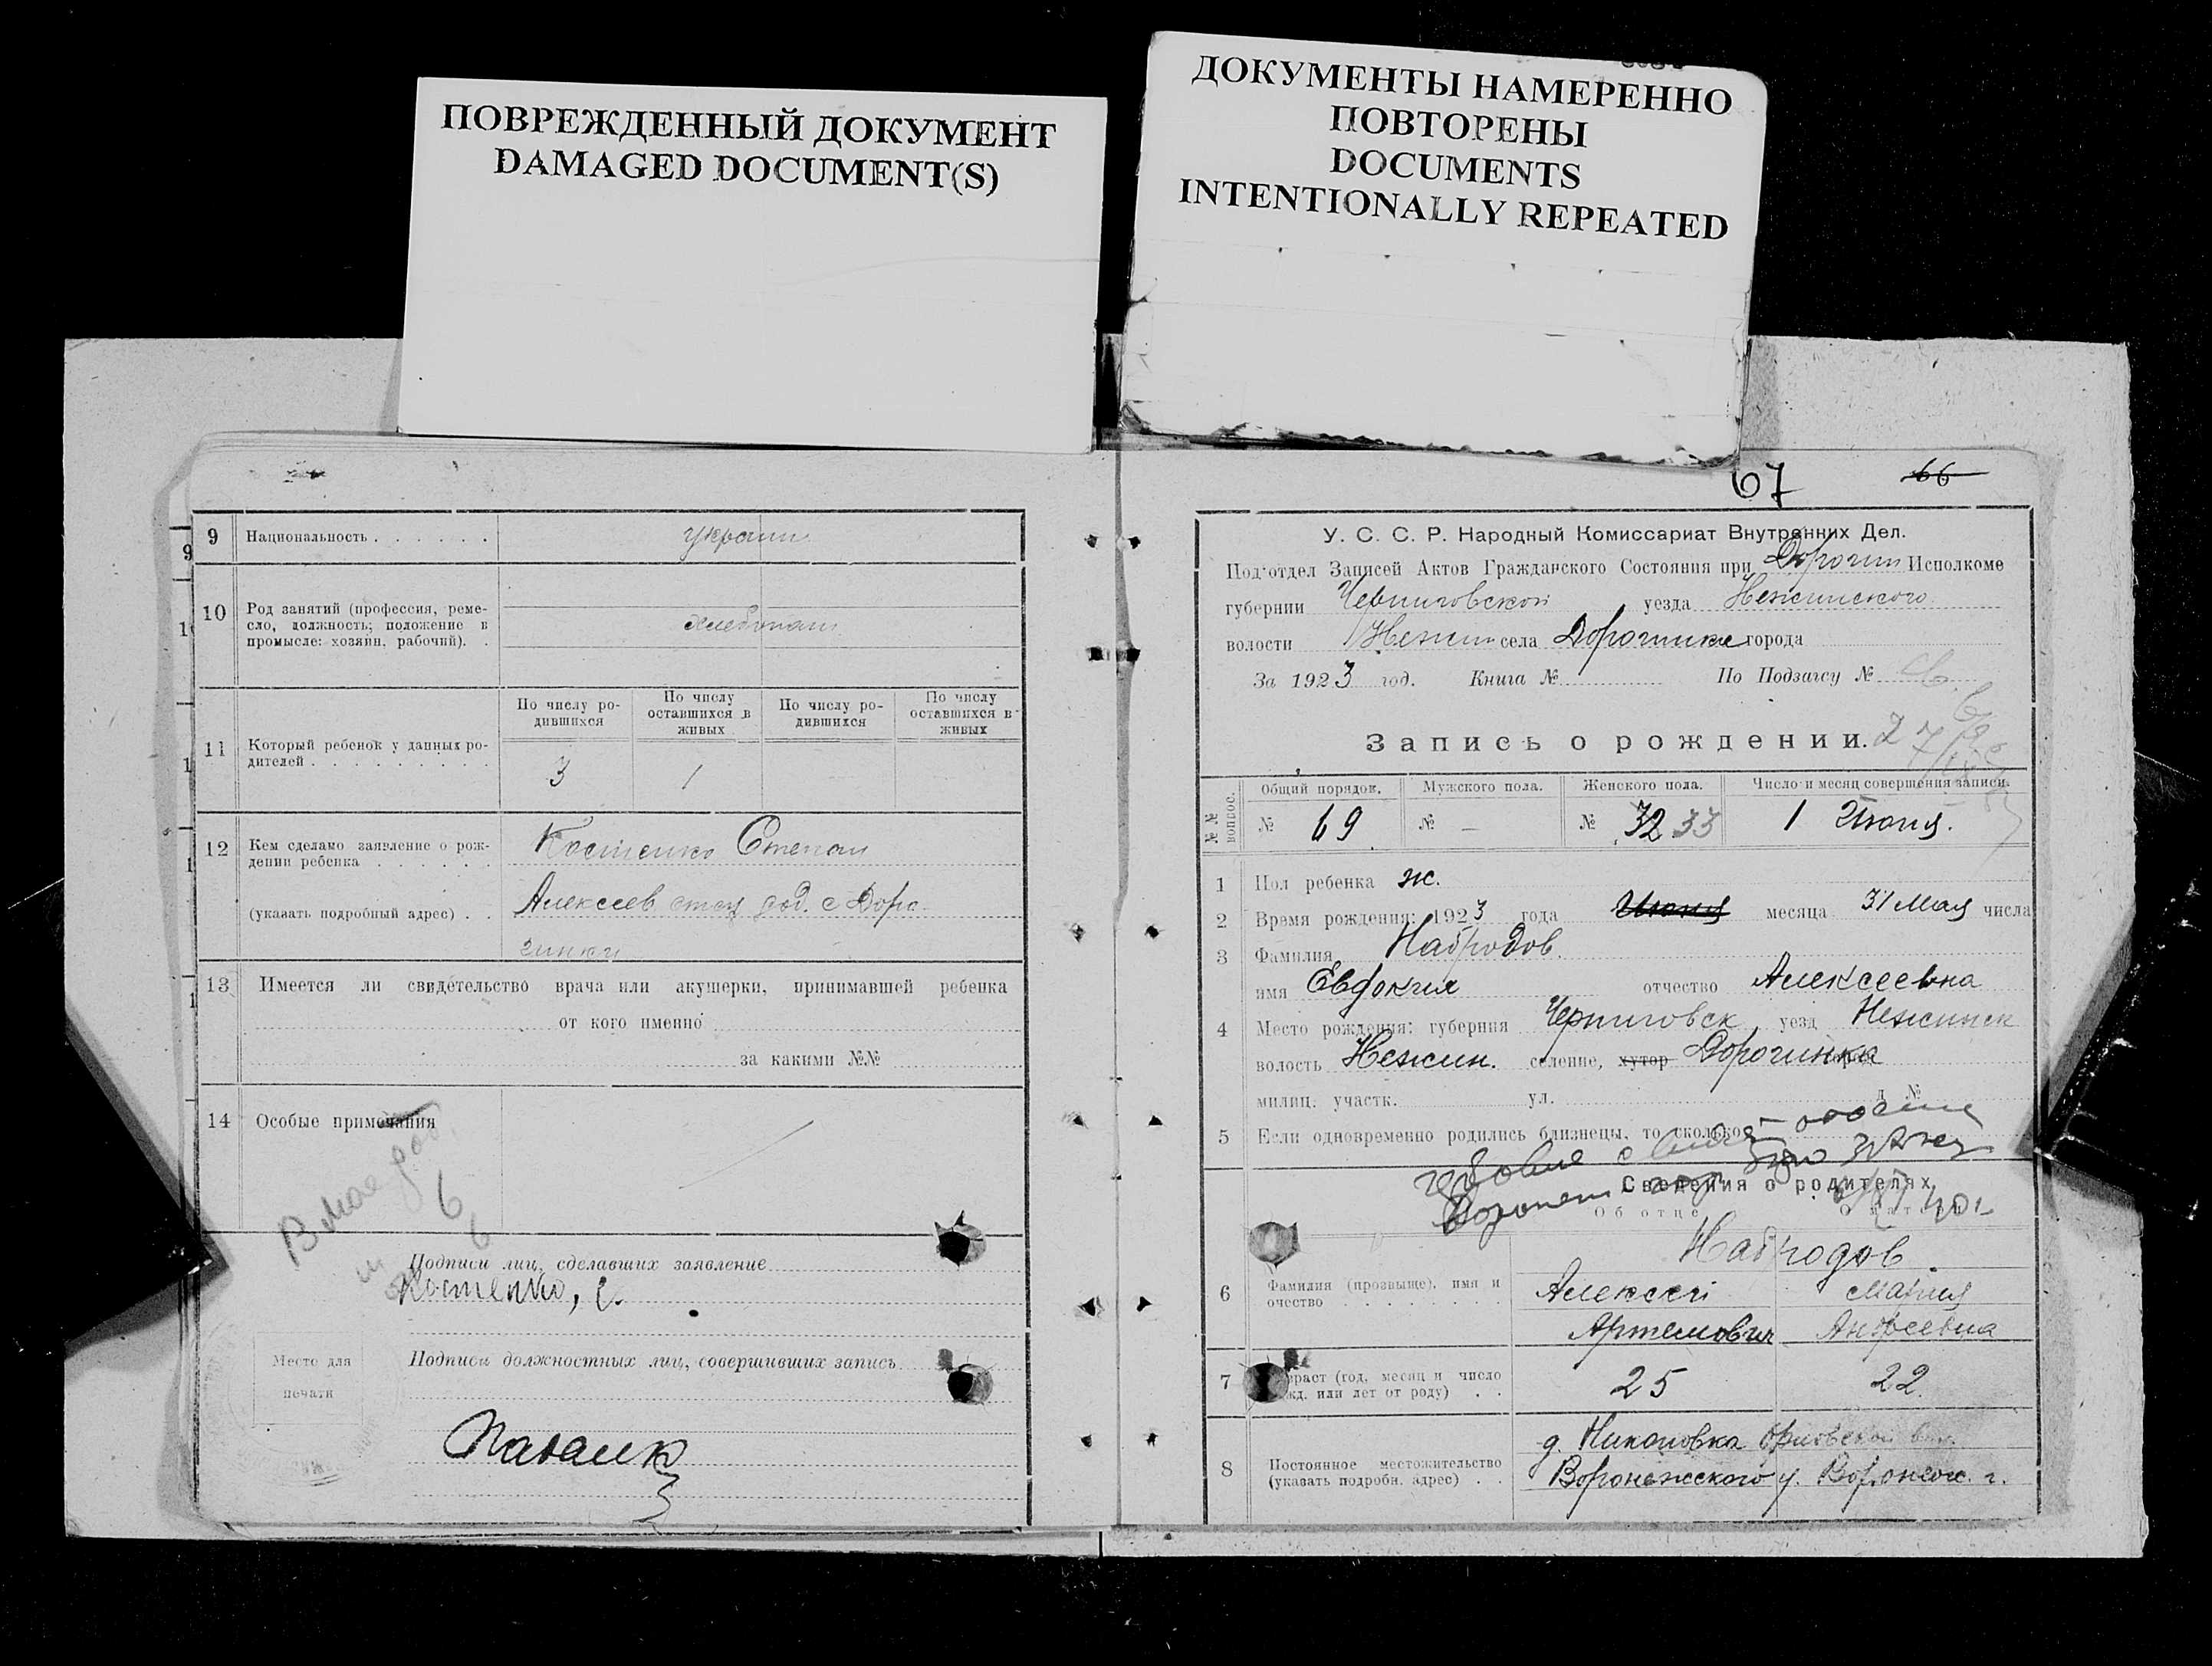 ПОВРЕЖДЕННЫЙ ДОКУМЕНТ
DAMAGED DOCUMENT(S)
ДОКУМЕНТЫ НАМЕРЕННО
ПОВТОРЕНЫ
DOCUMENTS
INTENTIONALLY REPEATED
9 Национальность украин
10 Род занятий (профессия, реме-
сло, должность; положение в
промысле: хозяин, рабочий).
По числу ро-
дившихся
По числу
оставшихся в
живых
По числу ро-
дившихся
По числу
оставшихся в
живых
11 Который ребенок у данных ро-
дителей 3 1
12 Кем сделано заявление о рож-
дении ребенка Костенко Степан
(указать подробный адрес) Алексеев с Доро
гинки
13 Имеется ли свидетельство врача или акушерки, принимавшей ребенка
от кого именно
за какими №№
14 Особые примечания
Подписи лиц, сделавших заявление
Костенко, С.
Место для
печати
Подписи должностных лиц, совершивших запись
67 66
У. С. С. Р. Народный Комиссариат Внутренних Дел.
Подотдел Записей Актов Гражданского Состояния при Дорогин Исполкоме
губернии Черниговской уезда Нежинского
волости Нежин села Дорогинка города
За 1923 год. Книга № По Подзагсу №
Запись о рождении.
№№ вопрос. Общий порядок. Мужского пола. Женского пола. Число и месяц совершения записи.
№ 69 № – № 32 33 1 Июня.
1 Пол ребенка ж.
2 Время рождения: 1923 года Июня месяца 31 Мая числа
3 Фамилия Набродов.
имя Евдокия отчество Алексеевна
4 Место рождения: губерния Черниговск уезд Нежинск
волость Нежин. селение, хутор Дорогинка
милиц. участк. ул. д №
5 Если одновременно родились близнецы, то сколько
Сведения о родителях
Об отце О матери
Набродов
6 Фамилия (прозвыще), имя и
очество Алексей Мария
Артемович Андреевна
7 Возраст (год, месяц и число
рожд. или лет от роду) 25 22
8 Постоянное местожительство
(указать подробн. адрес)
д. Никоновка Орловской вол.
Воронежского у. Воронеж. г.